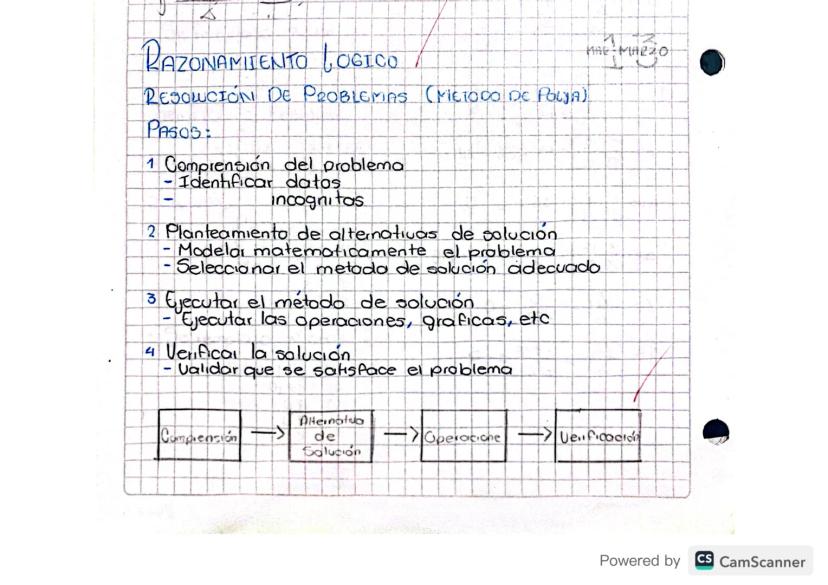 RAZONAMIENTO LOGICO
MAR MARZO
13
RESOLUCIÓN DE PROBLEMAS (METODO DE POLYA)
PASOS:
1 Comprensión del problema
- Identificar datos
- incognitas
2 Planteamiento de alternativas de solución
- Modelar matematicamente el problema
- Seleccionar el metodo de solución adecuado
3 Ejecutar el método de solución
- Ejecutar las operaciones, graficas, etc
4 Verificar la solución
- Validar que se satisface el problema
Comprensión → Alternativa de Solución → Operacione → Verificación
Powered by CS CamScanner